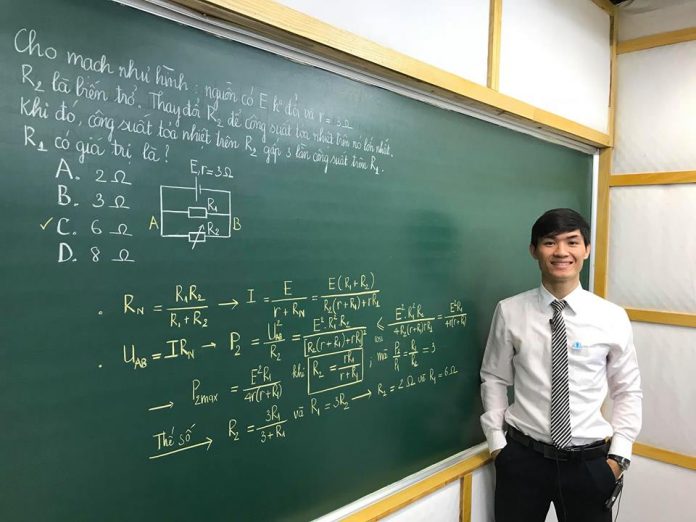 Cho mạch như hình : nguồn có E kº đổi và r = 3Ω
R₂ là biến trở. Thay đổi R₂ để công suất toả nhiệt trên nó lớn nhất.
Khi đó, công suất toả nhiệt trên R₂ gấp 3 lần công suất trên R₁.
R₁ có giá trị là?
A. 2 Ω
B. 3 Ω
✓ C. 6 Ω
D. 8 Ω
E, r = 3Ω
R₁
A B
R₂
. R_N = R₁R₂ / (R₁ + R₂) → I = E / (r + R_N) = E(R₁ + R₂) / (R₂(r + R₁) + rR₁)
. U_AB = I R_N → P₂ = U²_AB / R₂ = E².R₁².R₂ / [R₂(r + R₁) + rR₁]² ≤ E².R₁².R₂ / 4R₂(r + R₁)rR₁ = E²R₁ / 4r(r + R₁)
→ P₂max = E²R₁ / 4r(r + R₁) khi R₂ = rR₁ / (r + R₁) ; mà P₂ / P₁ = R₁ / R₂ = 3
Thế số → R₂ = 3R₁ / (3 + R₁) và R₁ = 3R₂ → R₂ = 2Ω và R₁ = 6Ω